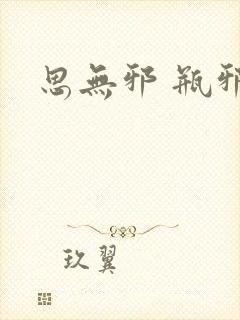 思無邪 瓶邪
玖翼